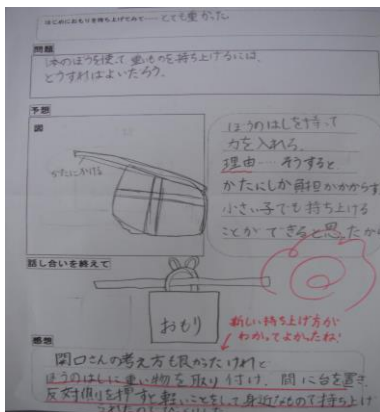 はじめにおもりを持ち上げてみて…… とても重かった
問題
1本のぼうを使って重いものを持ち上げるには、
どうすればよいだろう。
予想
図
かたにかける
ぼうのはしを持って
力を入れる。
理由……そうすると、
かたにしか負担がかからず
小さい子でも持ち上げる
ことができると思ったから
話し合いを終えて
おもり
新しい持ち上げ方が
わかってよかったね!
感想
関口さんの考え方も良かったけれど
ぼうのはしに重い物を取り付け、間に台を置き、
反対側を押すと軽いことをして身近なもので持ち上げ